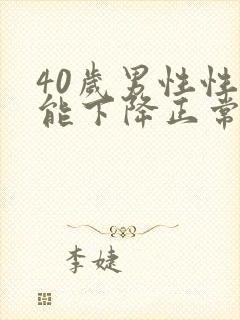 40歲男性性
能下降正常
李婕